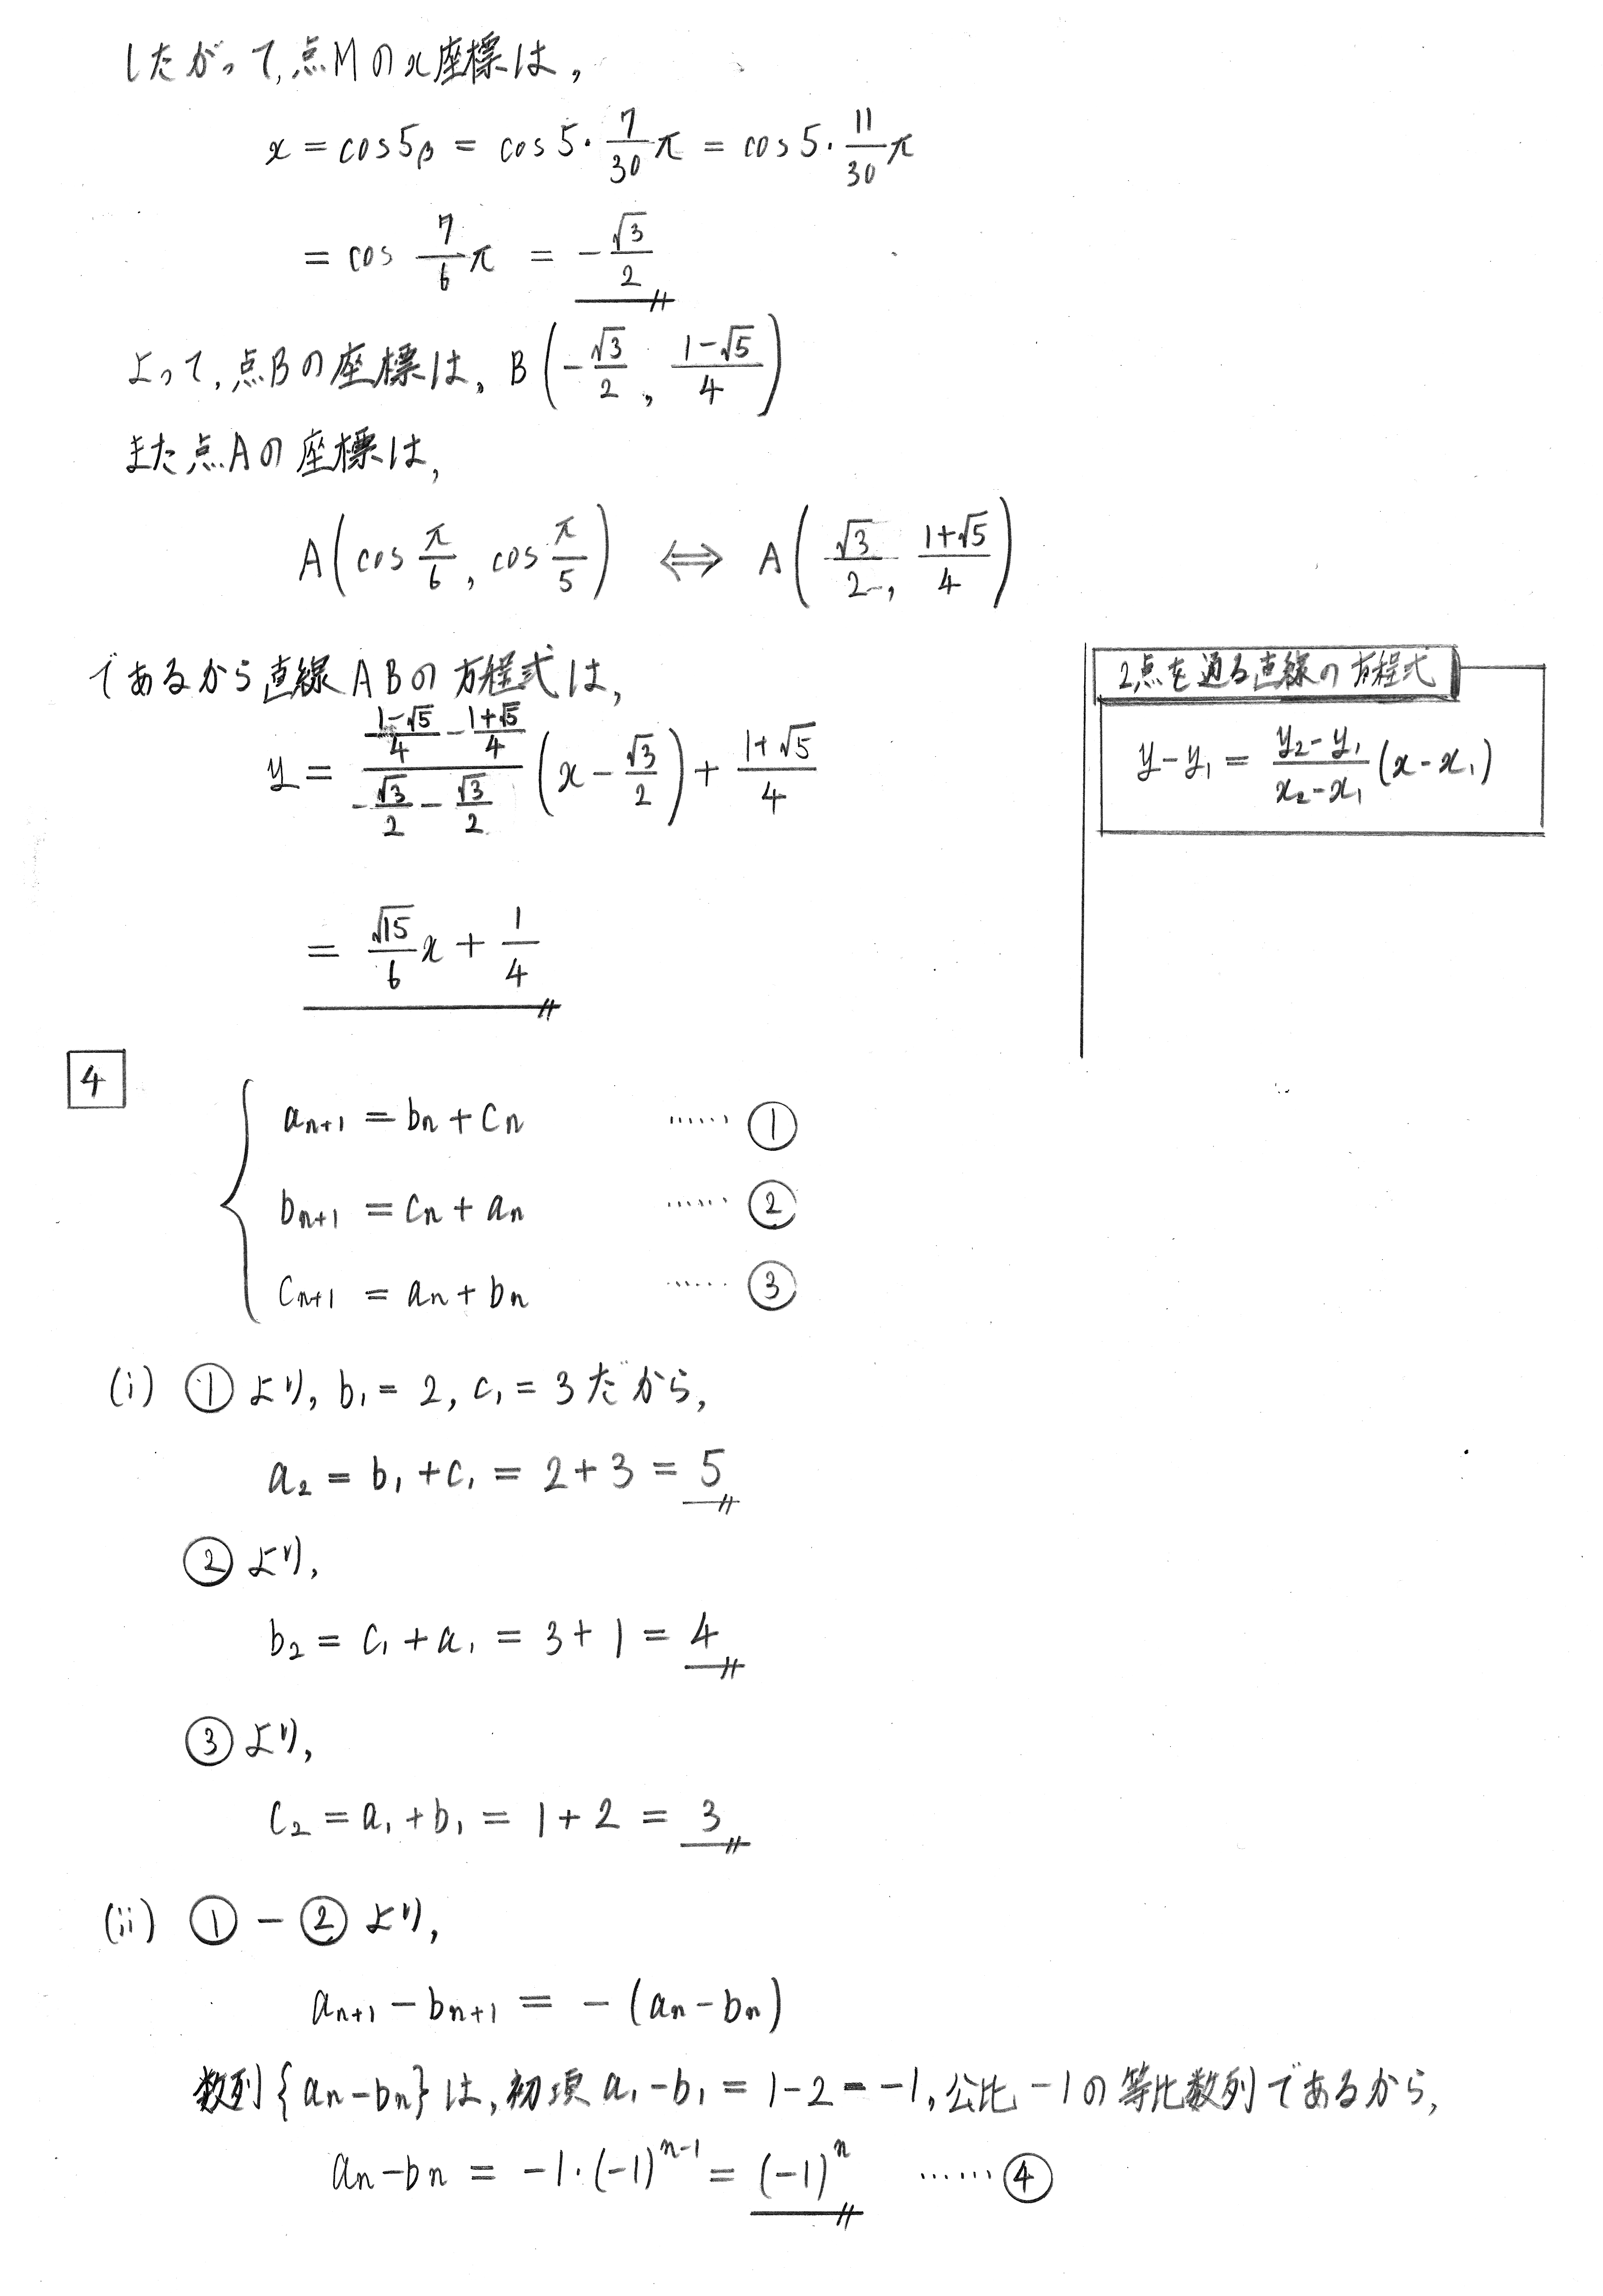 したがって,点Mのx座標は,
x = cos5β = cos5・7/30 π = cos5・11/30 π
= cos 7/6 π = -√3/2
よって,点Bの座標は。B(-√3/2, (1-√5)/4)
また点Aの座標は,
A(cos π/6, cos π/5) ⇔ A(√3/2, (1+√5)/4)
であるから直線ABの方程式は,
y = ((1-√5)/4 - (1+√5)/4)/(-√3/2 - √3/2) (x - √3/2) + (1+√5)/4
= √15/6 x + 1/4
2点を通る直線の方程式
y-y₁ = (y₂-y₁)/(x₂-x₁) (x-x₁)
4
aₙ₊₁ = bₙ + cₙ ……①
bₙ₊₁ = cₙ + aₙ ……②
cₙ₊₁ = aₙ + bₙ ……③
(i) ①より, b₁ = 2, c₁ = 3だから,
a₂ = b₁ + c₁ = 2 + 3 = 5
②より,
b₂ = c₁ + a₁ = 3 + 1 = 4
③より,
c₂ = a₁ + b₁ = 1 + 2 = 3
(ii) ① - ②より,
aₙ₊₁ - bₙ₊₁ = -(aₙ - bₙ)
数列{aₙ-bₙ}は,初項 a₁-b₁ = 1-2 = -1,公比 -1の等比数列であるから,
aₙ-bₙ = -1・(-1)ⁿ⁻¹ = (-1)ⁿ ……④